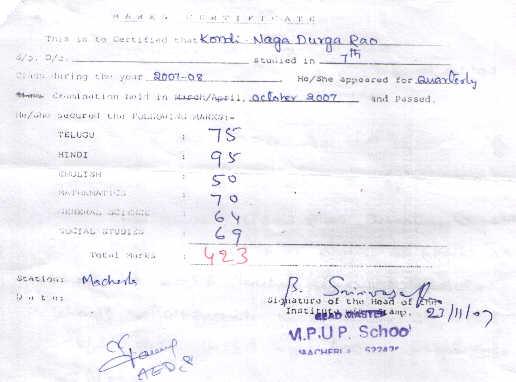 MARKS CERTIFICATE
This is to Certified that Kondi Naga Durga Rao
S/o. D/o. studied in 7th
Class during the year 2007-08 He/She appeared for Quarterly
Examination held in March/April, October 2007 and Passed.
He/She secured the FOLLOWING MARKS:-
TELUGU : 75
HINDI : 95
ENGLISH : 50
MATHEMATICS : 70
GENERAL SCIENCE : 64
SOCIAL STUDIES : 69
Total Marks : 423
Station: Macherla
Date:
Signature of the Head of the
Institution Stamp. 23/11/07
HEAD MASTER
M.P.U.P. School
MACHERLA